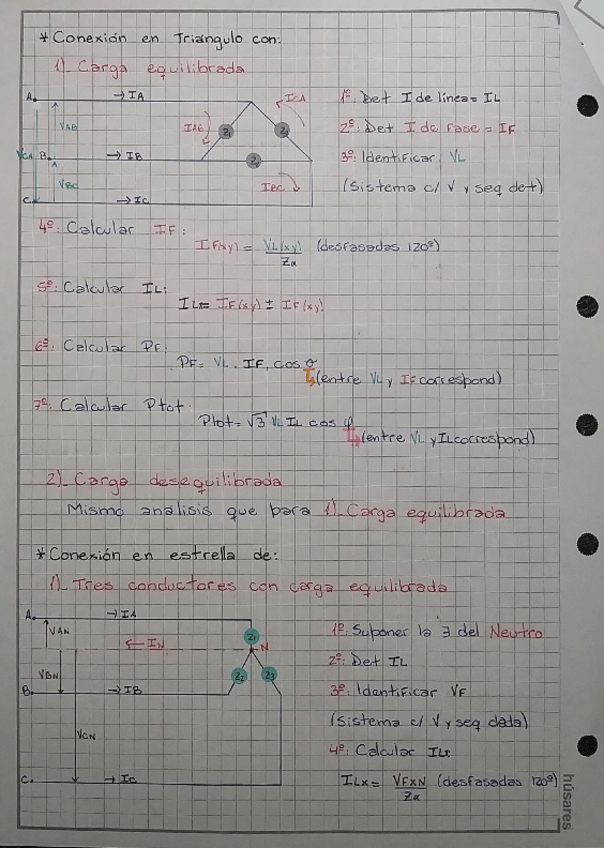 * Conexión en Triángulo con:
1) Carga equilibrada
A. → IA
ICA
1º: Det I de línea = IL
VAB
IAB
Z1
Z3
2º: Det I de fase = IF
VCA B. → IB
Z2
3º: Identificar VL
VBC
IBC
(Sistema c/ V y seq det)
C. → IC
4º: Calcular IF:
IF(xy) = VL(xy) / Zα (desfasadas 120º)
5º: Calcular IL:
IL = IF(xy) ± IF(xy)
6º: Calcular PF:
PF = VL . IF . cos θ
↳(entre VL y IF correspond)
7º: Calcular Ptot:
Ptot = √3 VL IL cos φ
↳(entre VL y IL correspond)
2) Carga desequilibrada
Mismo analisis que para 1) Carga equilibrada
* Conexión en estrella de:
1) Tres conductores con carga equilibrada
A. → IA
VAN
Z1
1º: Suponer la ∃ del Neutro
← IN
N
2º: Det IL
VBN
Z2
Z3
B. → IB
3º: Identificar VF
(Sistema c/ V y seq dada)
VCN
4º: Calcular IL:
C. → IC
ILx = VFXN / Zα (desfasadas 120º)
húsares